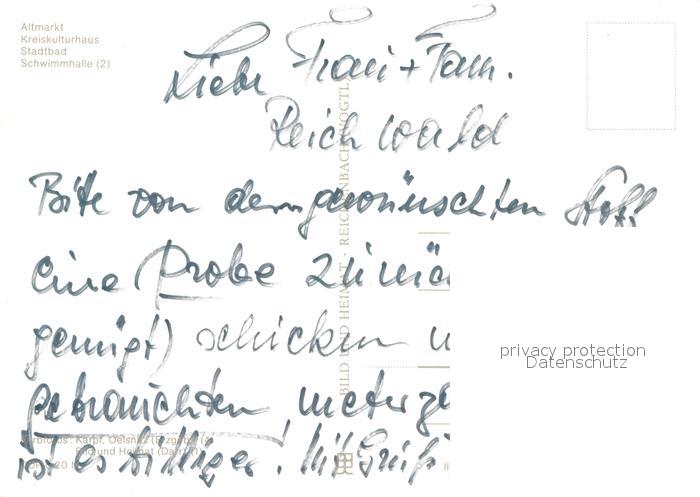 Altmarkt
Kreiskulturhaus
Stadtbad
Schwimmhalle (2)
Liebe Frau + Fam.
Reichwald
Bitte von dem gewünschten Stoff
eine Probe
genügt) schicken
gebrauchten
ist es billiger. Mit Gruß
BILD UND HEIMAT · REICHENBACH VOGTL
Karpf, Oelsnitz (Erzgeb.) (4)
Bild und Heimat
privacy protection
Datenschutz